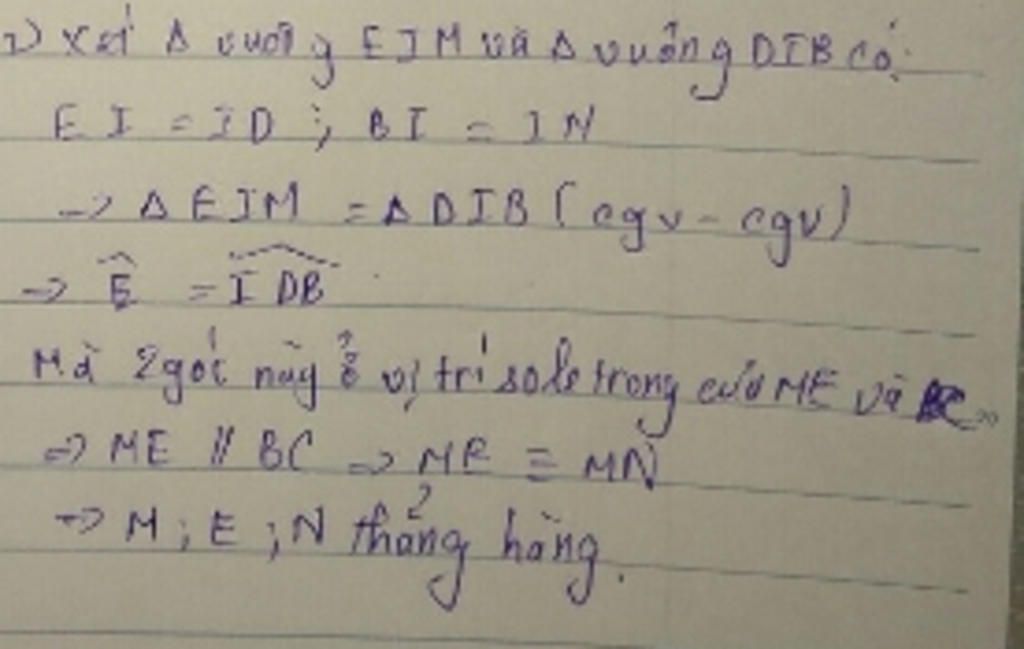 2) Xét Δ vuông EIM và Δ vuông DIB có:
EI = ID ; BI = IN
→ Δ EIM = Δ DIB (cgv - cgv)
→ Ê = \widehat{IDB}
Mà 2 góc này ở vị trí sole trong của ME và BC
⇒ ME // BC → ME ≡ MN
→ M ; E ; N thẳng hàng.